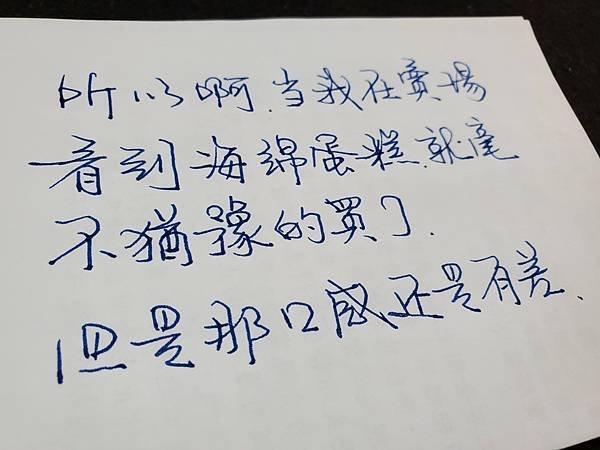 所以啊.当我在賣場
看到海綿蛋糕.就毫
不猶豫的買了.
但是那口感还是有差.